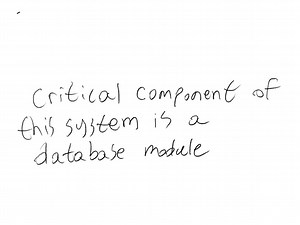 Critical component of
this system is a
database module